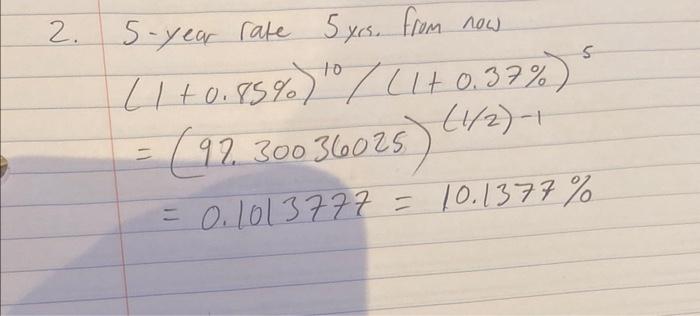 2. 5-year rate 5 yrs. from now
(1+0.85%)^10 / (1+0.37%)^5
= (97.30036025)^(1/2)-1
= 0.1013777 = 10.1377%